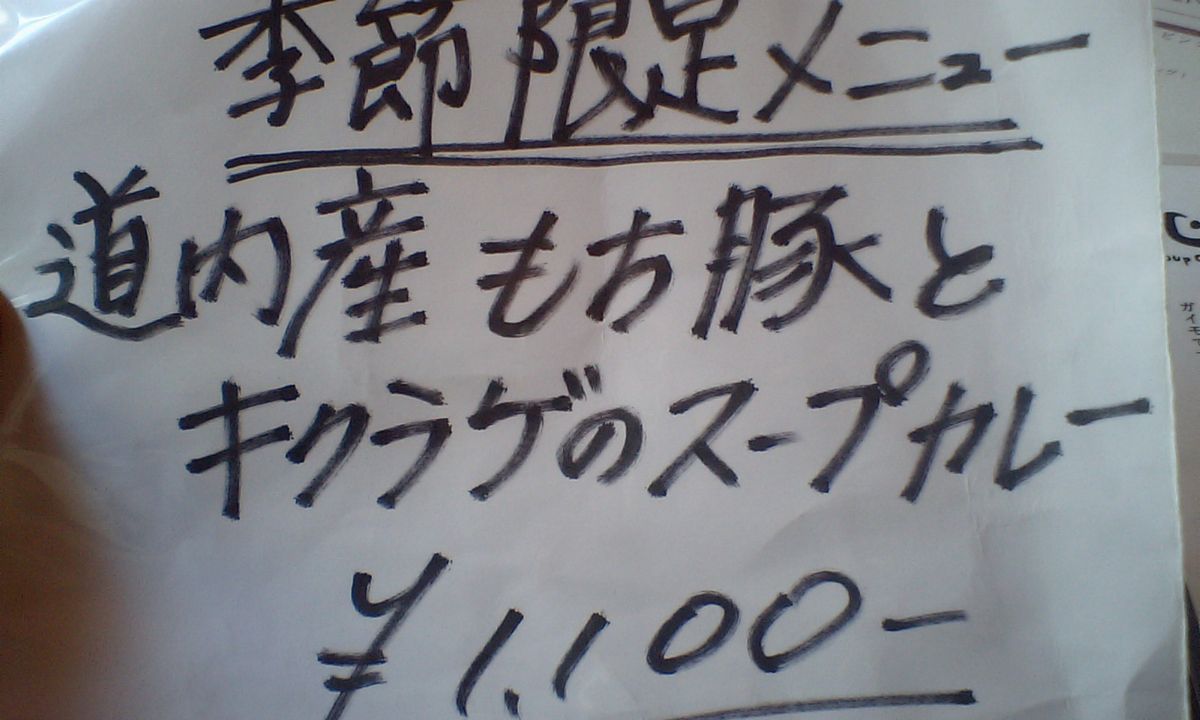 季節限定メニュー
道内産もち豚と
キクラゲのスープカレー
¥1,100-